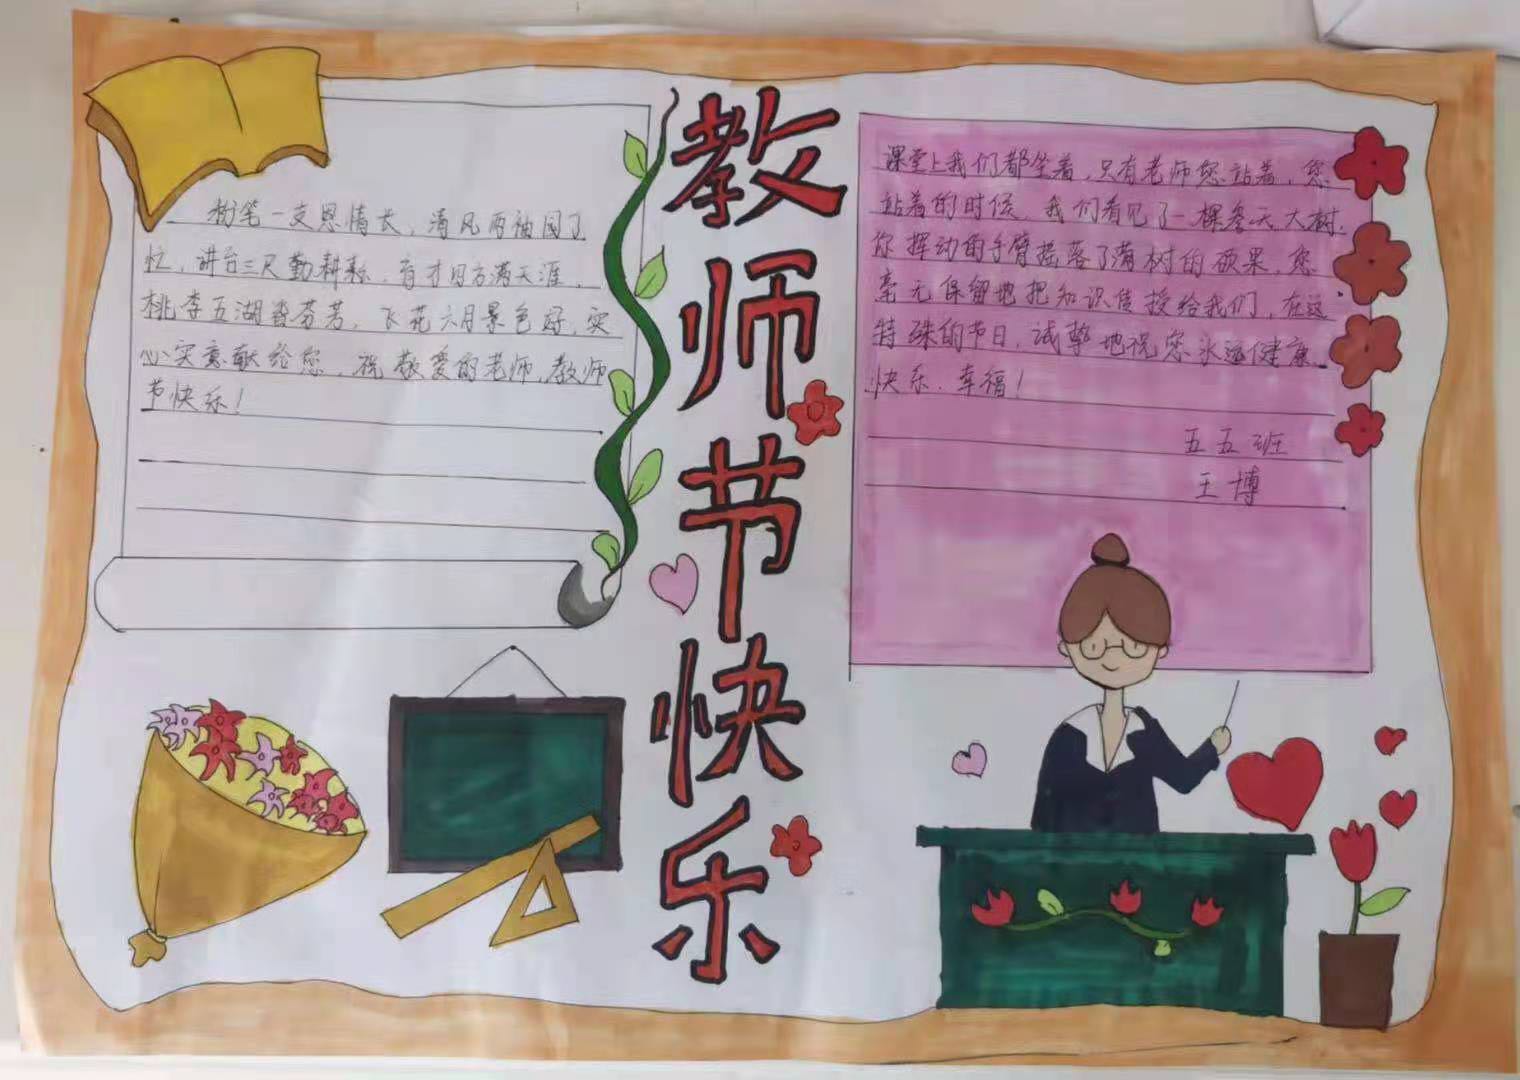 粉笔一支恩情长，清风两袖园丁
忙，讲台三尺勤耕耘，育才四方满天涯，
桃李五湖香芬芳，飞花六月景色好，实
心实意献给您，祝敬爱的老师，教师
节快乐！
教师节快乐
课堂上我们都坐着，只有老师您站着，您
站着的时候，我们看见了一棵参天大树，
你挥动的手臂摇落了满树的硕果，您
毫无保留地把知识传授给我们，在这
特殊的节日，诚挚地祝您永远健康
快乐、幸福！
五五班
王博